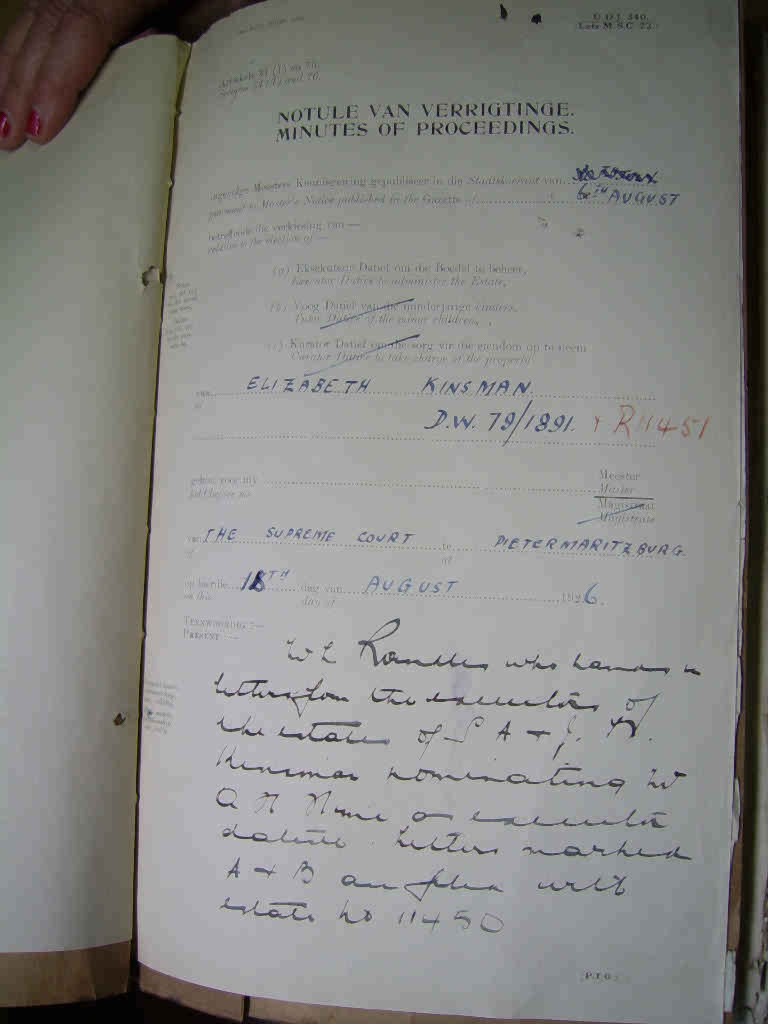 U.D.J. 340.
Late M.S.C. 22.
Artikels 31 (1) en 76.
Sections 31 (1) and 76.
NOTULE VAN VERRIGTINGE.
MINUTES OF PROCEEDINGS.
ingevolge Meesters Kennisgewing gepubliseer in die Staatskoerant van
pursuant to Master's Notice published in the Gazette of 6TH AUGUST
betreffende die verkiesing van —
relative to the election of —
(a) Eksekuteur Datief om die Boedel te beheer,
Executor Dative to administer the Estate,
(b) Voog Datief van die minderjarige kinders,
Tutor Dative of the minor children,
(c) Kurator Datief om die sorg vir die eiendom op te neem
Curator Dative to take charge of the property
van ELIZABETH KINSMAN
of
D.W. 79/1891. R 11451
gehou voor my Meester
held before me Master
Magistraat
Magistrate
van THE SUPREME COURT te PIETERMARITZBURG
of at
op hierdie 18TH dag van AUGUST 1926.
on this day of
TEENWOORDIG :—
PRESENT :—
who hands in
letters from the executors of
the estates of S A + J. W.
Kinsman nominating Mr
A H Hime as executor
dative. Letters marked
A + B are filed with
estate No 11450
[P.T.O.]